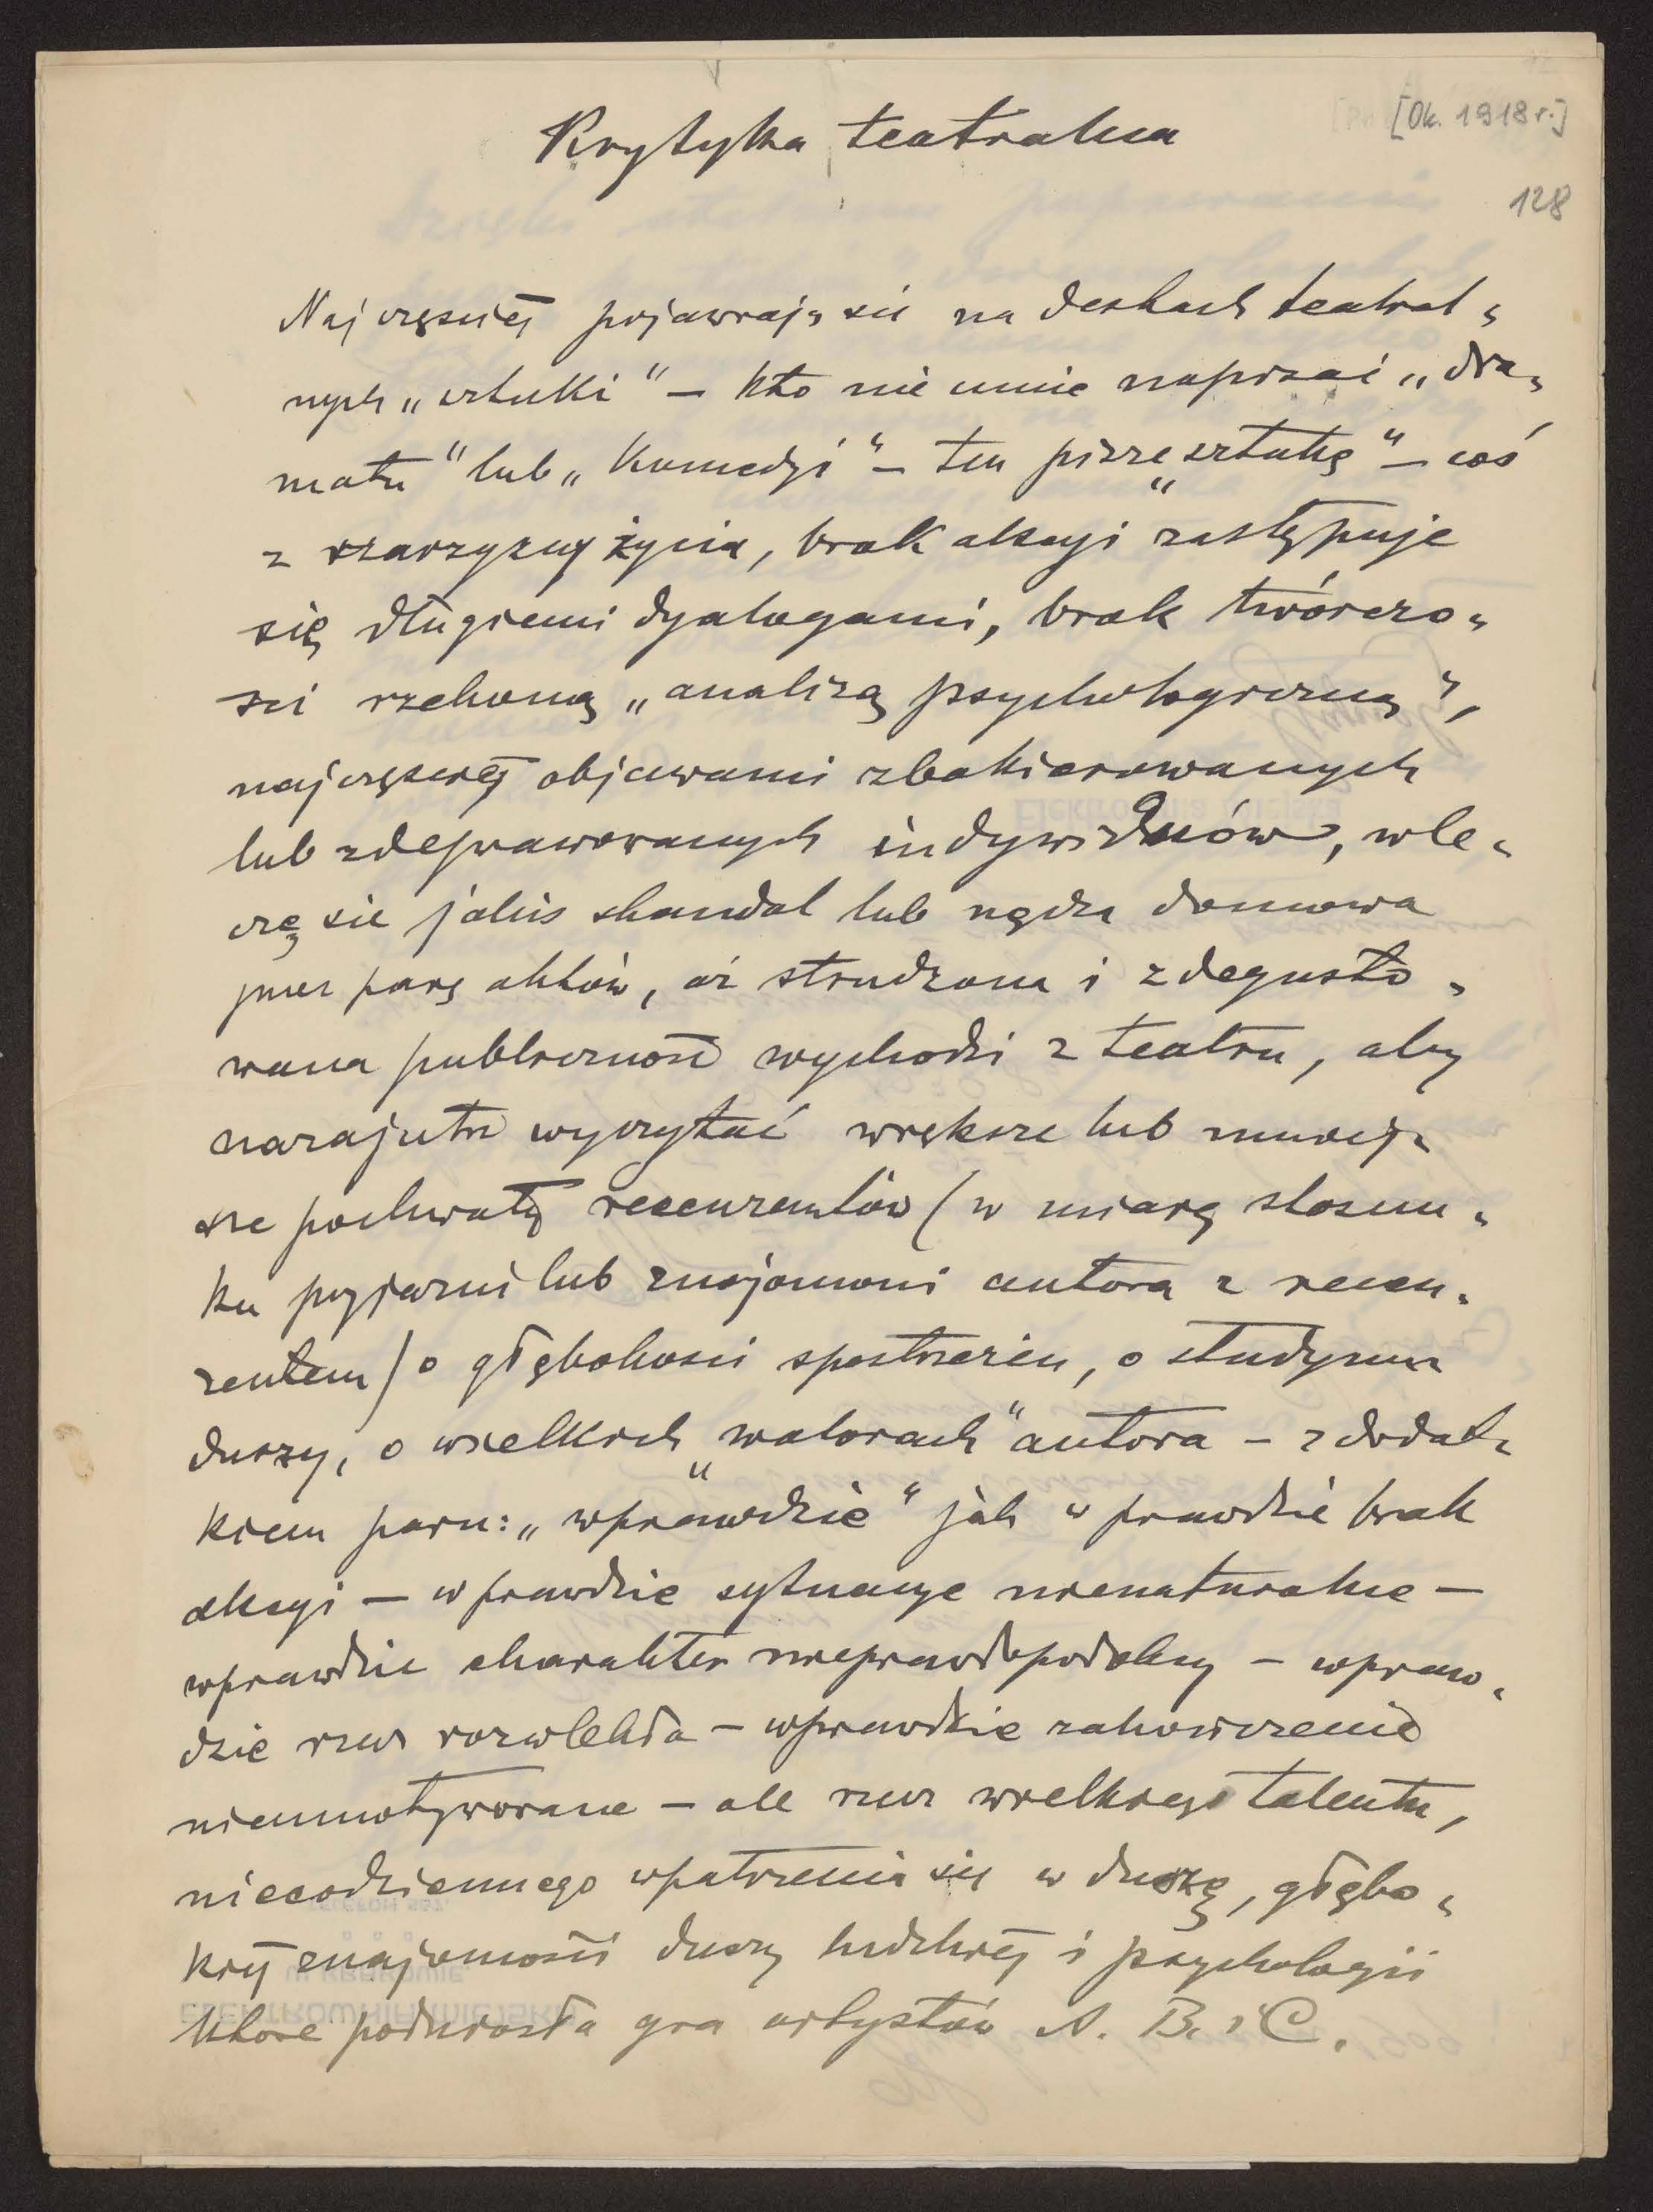 [Ok. 1918 r.]
Krytyka teatralna
128
Najczęściej pojawiają się na deskach teatral„
nych „sztuki“ – kto nie umie napisać „dra„
matu“ lub „komedyi“ – ten pisze „sztukę“ – coś
z szarzyzny życia, brak akcyi zastępuje
się długiemi dyalogami, brak twórczo„
ści rzekomą „analizą psychologiczną“,
najczęściej objawami zbakierowanych
lub zdeprawowanych indywiduów, wle„
czę się jakiś skandal lub nędza domowa
przez parę aktów, aż strudzona i zdegusto„
wana publiczność wychodzi z teatru, aby
nazajutrz wyczytać większe lub mniej„
sze pochwały recenzentów (w miarę stosun„
ku przyjaźni lub znajomości autora z recen„
zentem) o głębokości spostrzeżeń, o studyum
duszy, o wielkich „walorach“ autora – z dodat„
kiem paru: „wprawdzie“ jak wprawdzie brak
akcyi – wprawdzie sytuacye nienaturalne –
wprawdzie charakter nieprawdopodobny – wpraw„
dzie rzecz rozwlekła – wprawdzie zakończenie
nieumotywowane – ale rzecz wielkiego talentu,
niecodziennego wpatrzenia się w duszę, głębo„
kiej znajomości duszy ludzkiej i psychologii
które podniosła gra artystów A. B. i C.